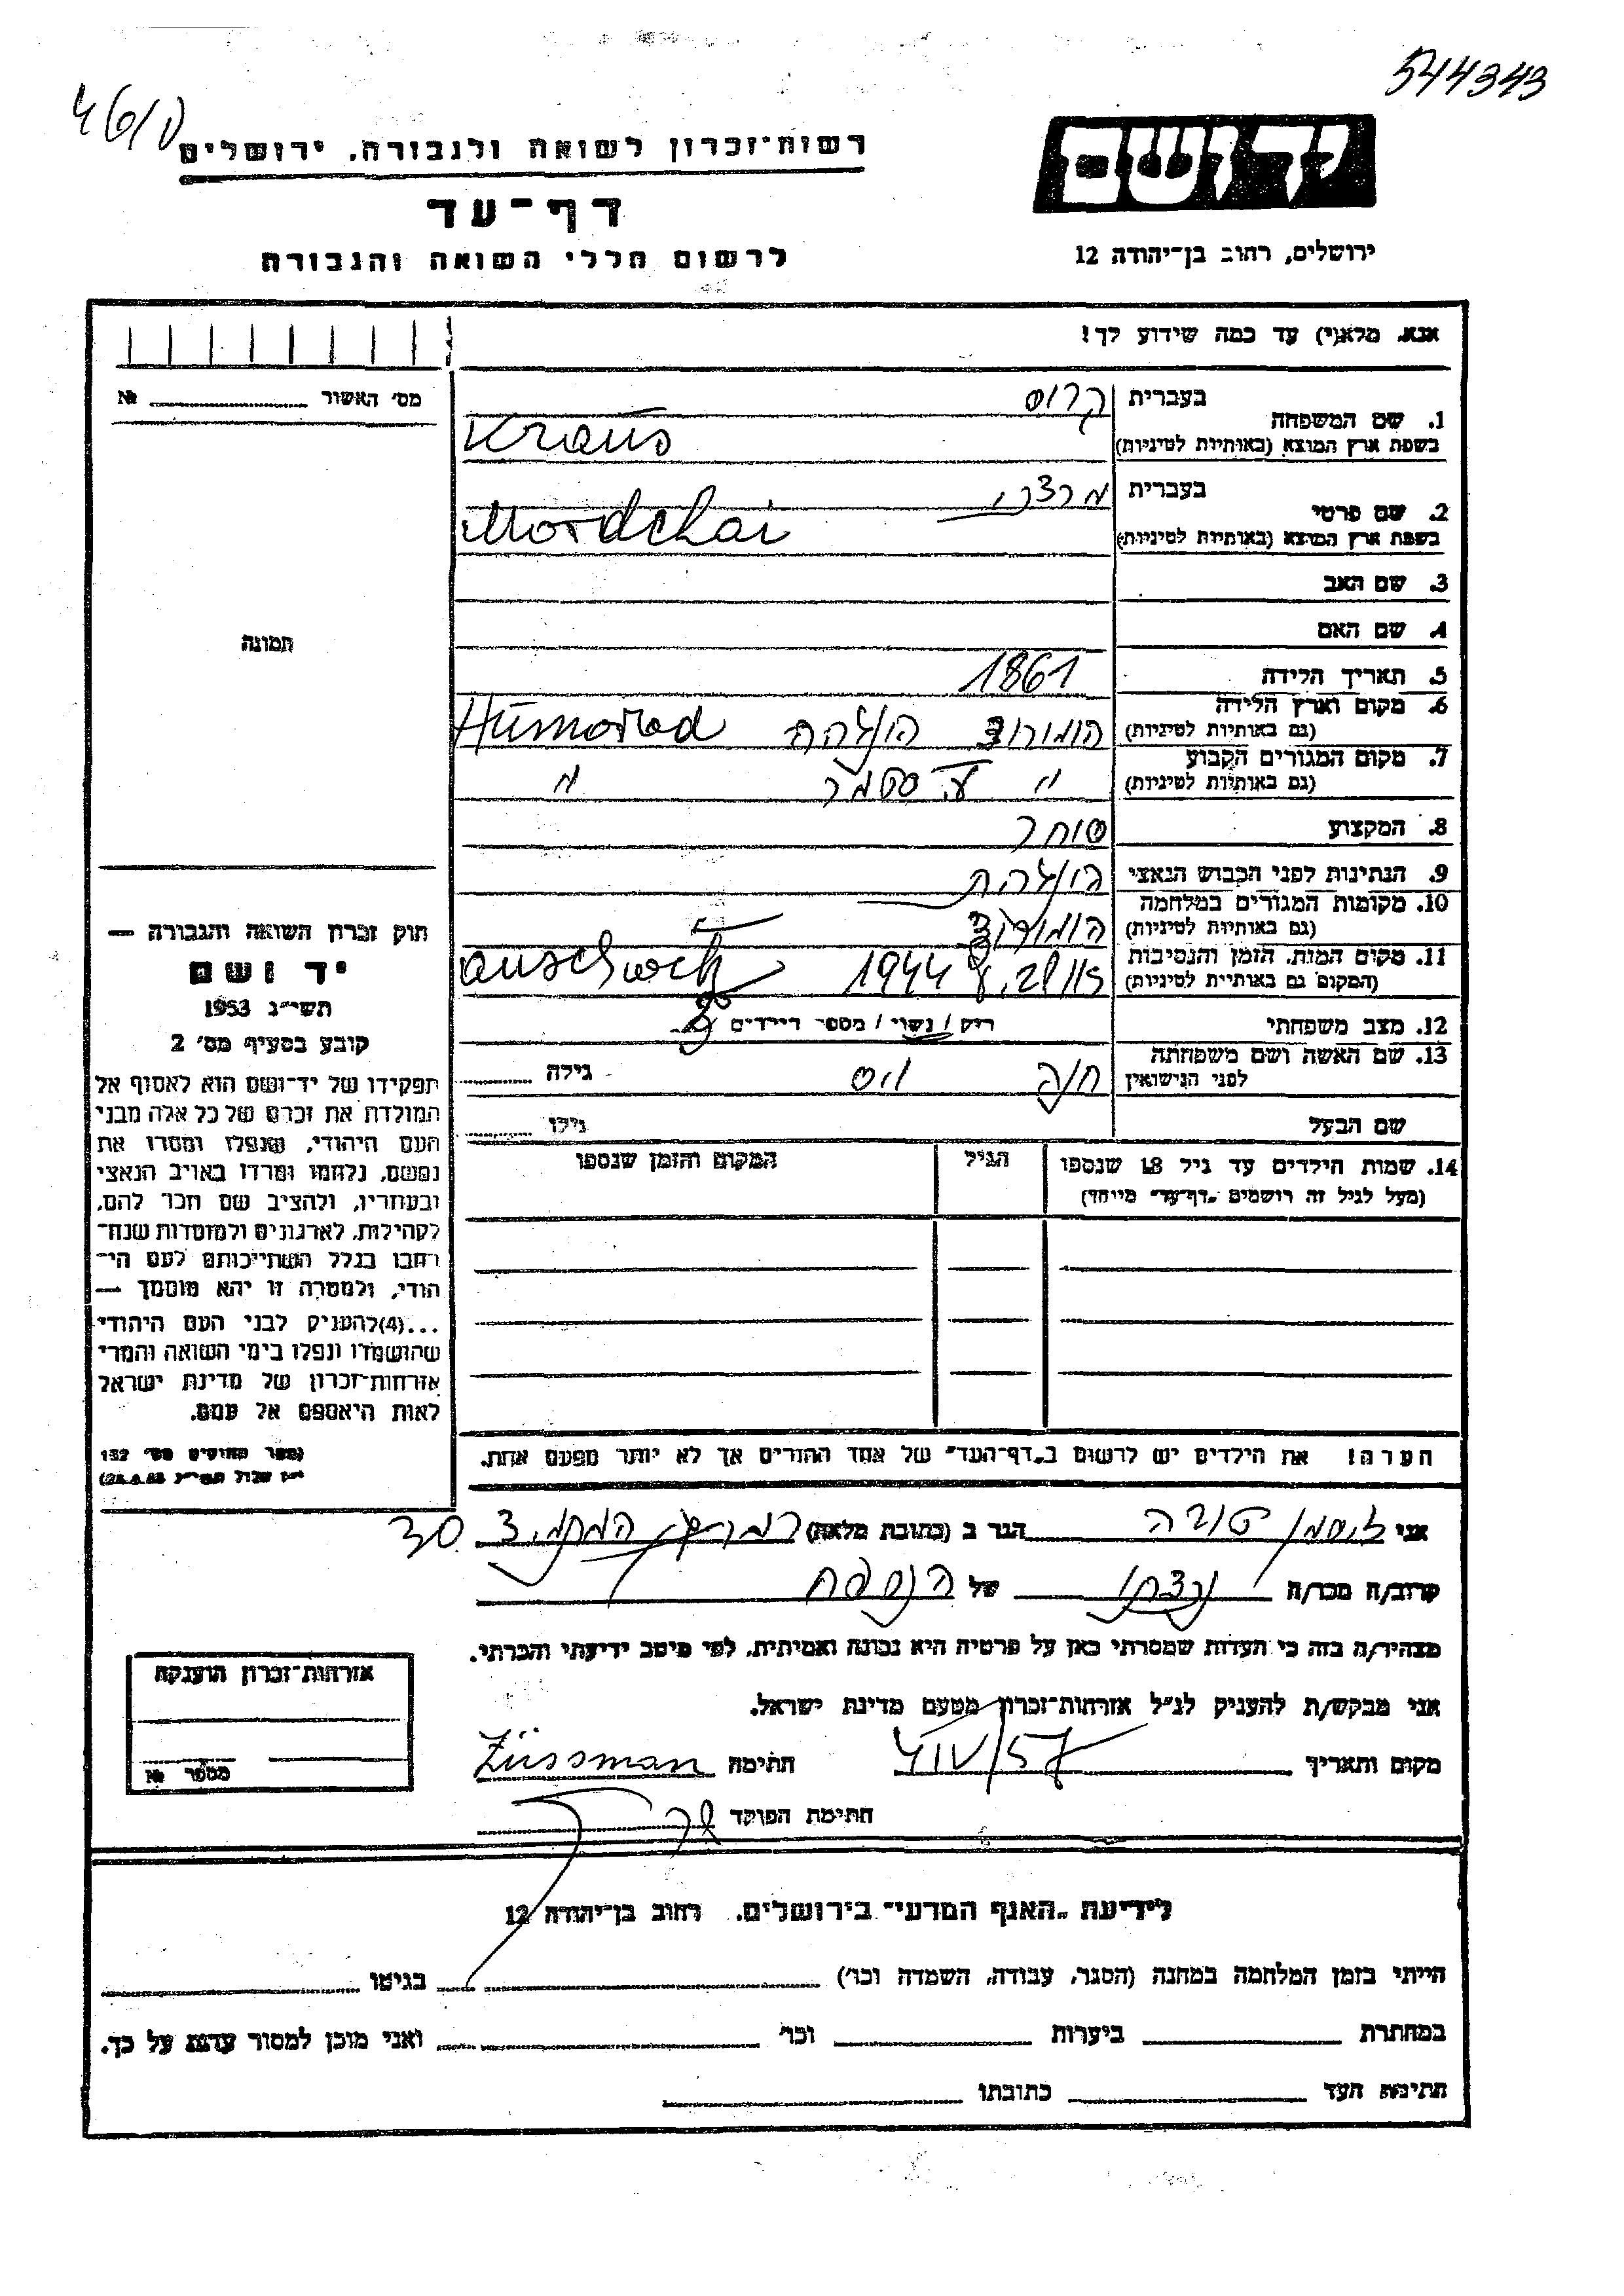 544343
46/
רשות־זכרון לשואה ולגבורה, ירושלים
דף־עד
לרשום חללי השואה והגבורה
יד ושם
ירושלים, רחוב בן־יהודה 12
אנא, מלא(י) עד כמה שידוע לך!
מס׳ האשור № 
1. שם המשפחה בעברית קרוס
בשפת ארץ המוצא (באותיות לטיניות) Kraus
2. שם פרטי בעברית מרדכי
בשפת ארץ המוצא (באותיות לטיניות) Mordchai
3. שם האב
4. שם האם
תמונה
5. תאריך הלידה 1861
6. מקום וארץ הלידה (גם באותיות לטיניות) הומורוד הונגריה Humorod
7. מקום המגורים הקבוע (גם באותיות לטיניות) " סטמר "
8. המקצוע סוחר
9. הנתינות לפני הכבוש הנאצי הונגרית
10. מקומות המגורים במלחמה (גם באותיות לטיניות) הומורוד
11. מקום המות, הזמן והנסיבות (המקום גם באותיות לטיניות) 1944
12. מצב משפחתי רוק / נשוי / מספר הילדים
13. שם האשה ושם משפחתה לפני הנישואין חנה וייס גילה
שם הבעל גילו
14. שמות הילדים עד גיל 18 שנספו הגיל המקום והזמן שנספו
(מעל לגיל זה רושמים „דף־עד״ מיוחד)
חוק זכרון השואה והגבורה —
יד ושם
תשי״ג 1953
קובע בסעיף מס׳ 2
תפקידו של יד־ושם הוא לאסוף אל
המולדת את זכרם של כל אלה מבני
העם היהודי, שנפלו ומסרו את
נפשם, נלחמו ומרדו באויב הנאצי
ובעוזריו, ולהציב שם וזכר להם,
לקהילות, לארגונים ולמוסדות שנח־
רבו בגלל השתייכותם לעם הי־
הודי, ולמטרה זו יהא מוסמך —
...(4)להעניק לבני העם היהודי
שהושמדו ונפלו בימי השואה והמרי
אזרחות־זכרון של מדינת ישראל
לאות היאספם אל עמם.
(ספר החוקים מס׳ 132
הערה! את הילדים יש לרשום ב„דף־העד״ של אחד ההורים אך לא יותר מפעם אחת.
אני זוסמן טובה הגר ב (כתובת מלאה) 30
קרוב/ה מכר/ה נכדתו של הנספה
מצהיר/ה בזה כי העדות שמסרתי כאן על פרטיה היא נכונה ואמיתית, לפי מיטב ידיעתי והכרתי.
אני מבקש/ת להעניק לנ״ל אזרחות־זכרון מטעם מדינת ישראל.
מקום ותאריך 4/IV/57 חתימה Züssman
חתימת הפוקד
אזרחות־זכרון הוענקה
מספר №
לידיעת „האגף המדעי״ בירושלים, רחוב בן־יהודה 12
הייתי בזמן המלחמה במחנה (הסגר, עבודה, השמדה וכו׳) בגיטו
במחתרת ביערות וכו׳ ואני מוכן למסור עדות על כך.
חתימת העד כתובתו